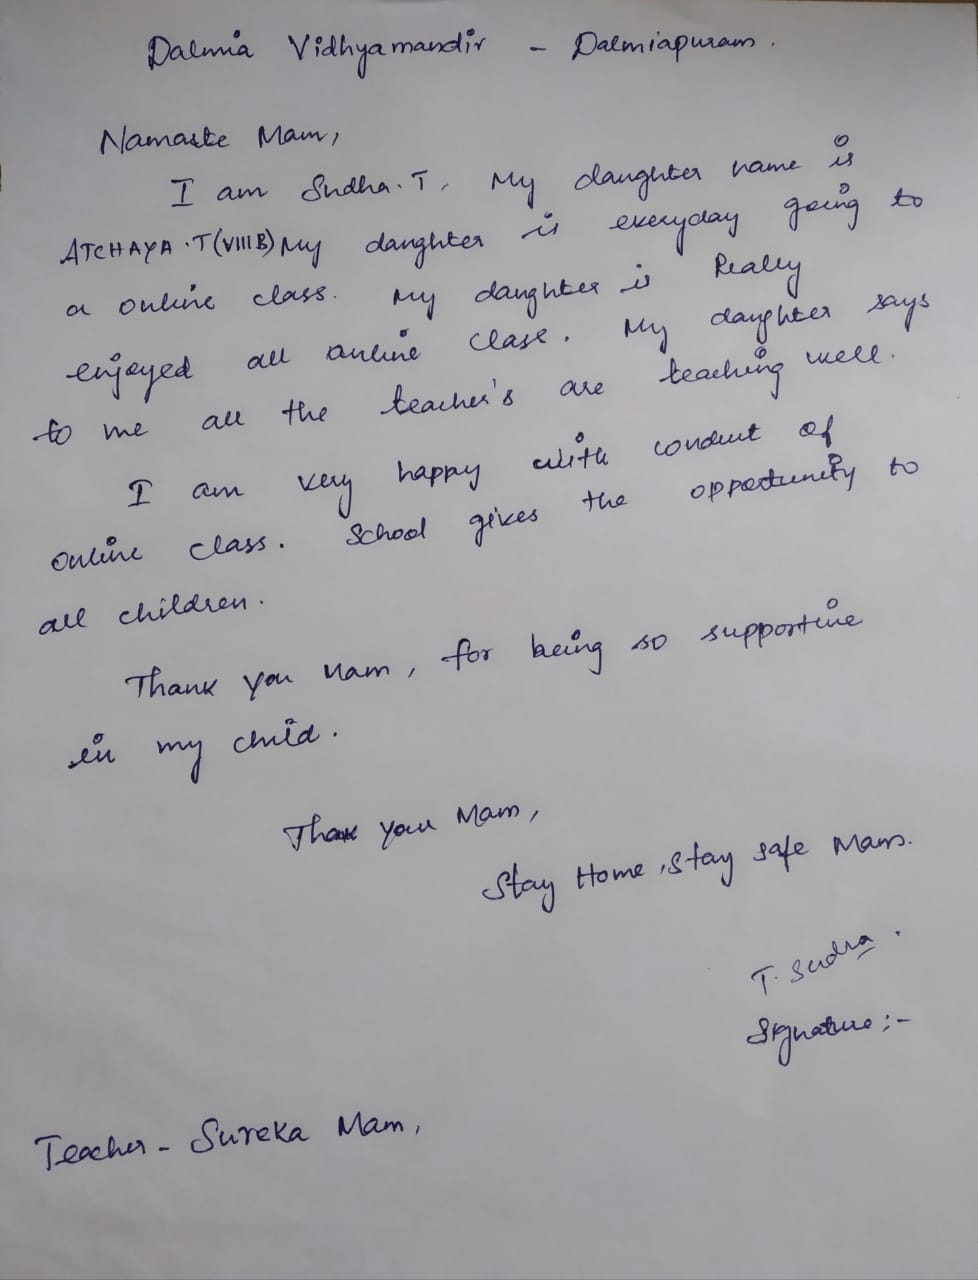 Dalmia Vidhyamandir - Dalmiapuram.
Namaste Mam,
I am Sudha.T. My daughter name is
ATCHAYA.T(VIII B) My daughter is everyday going to
a online class. My daughter is Really
enjoyed all online class. My daughter says
to me all the teacher's are teaching well.
I am very happy with conduct of
online class. School gives the opportunity to
all children.
Thank you Mam, for being so supportive
in my child.
Thank you Mam,
Stay Home, stay safe Mam.
T. Sudha.
Signature:-
Teacher - Sureka Mam,